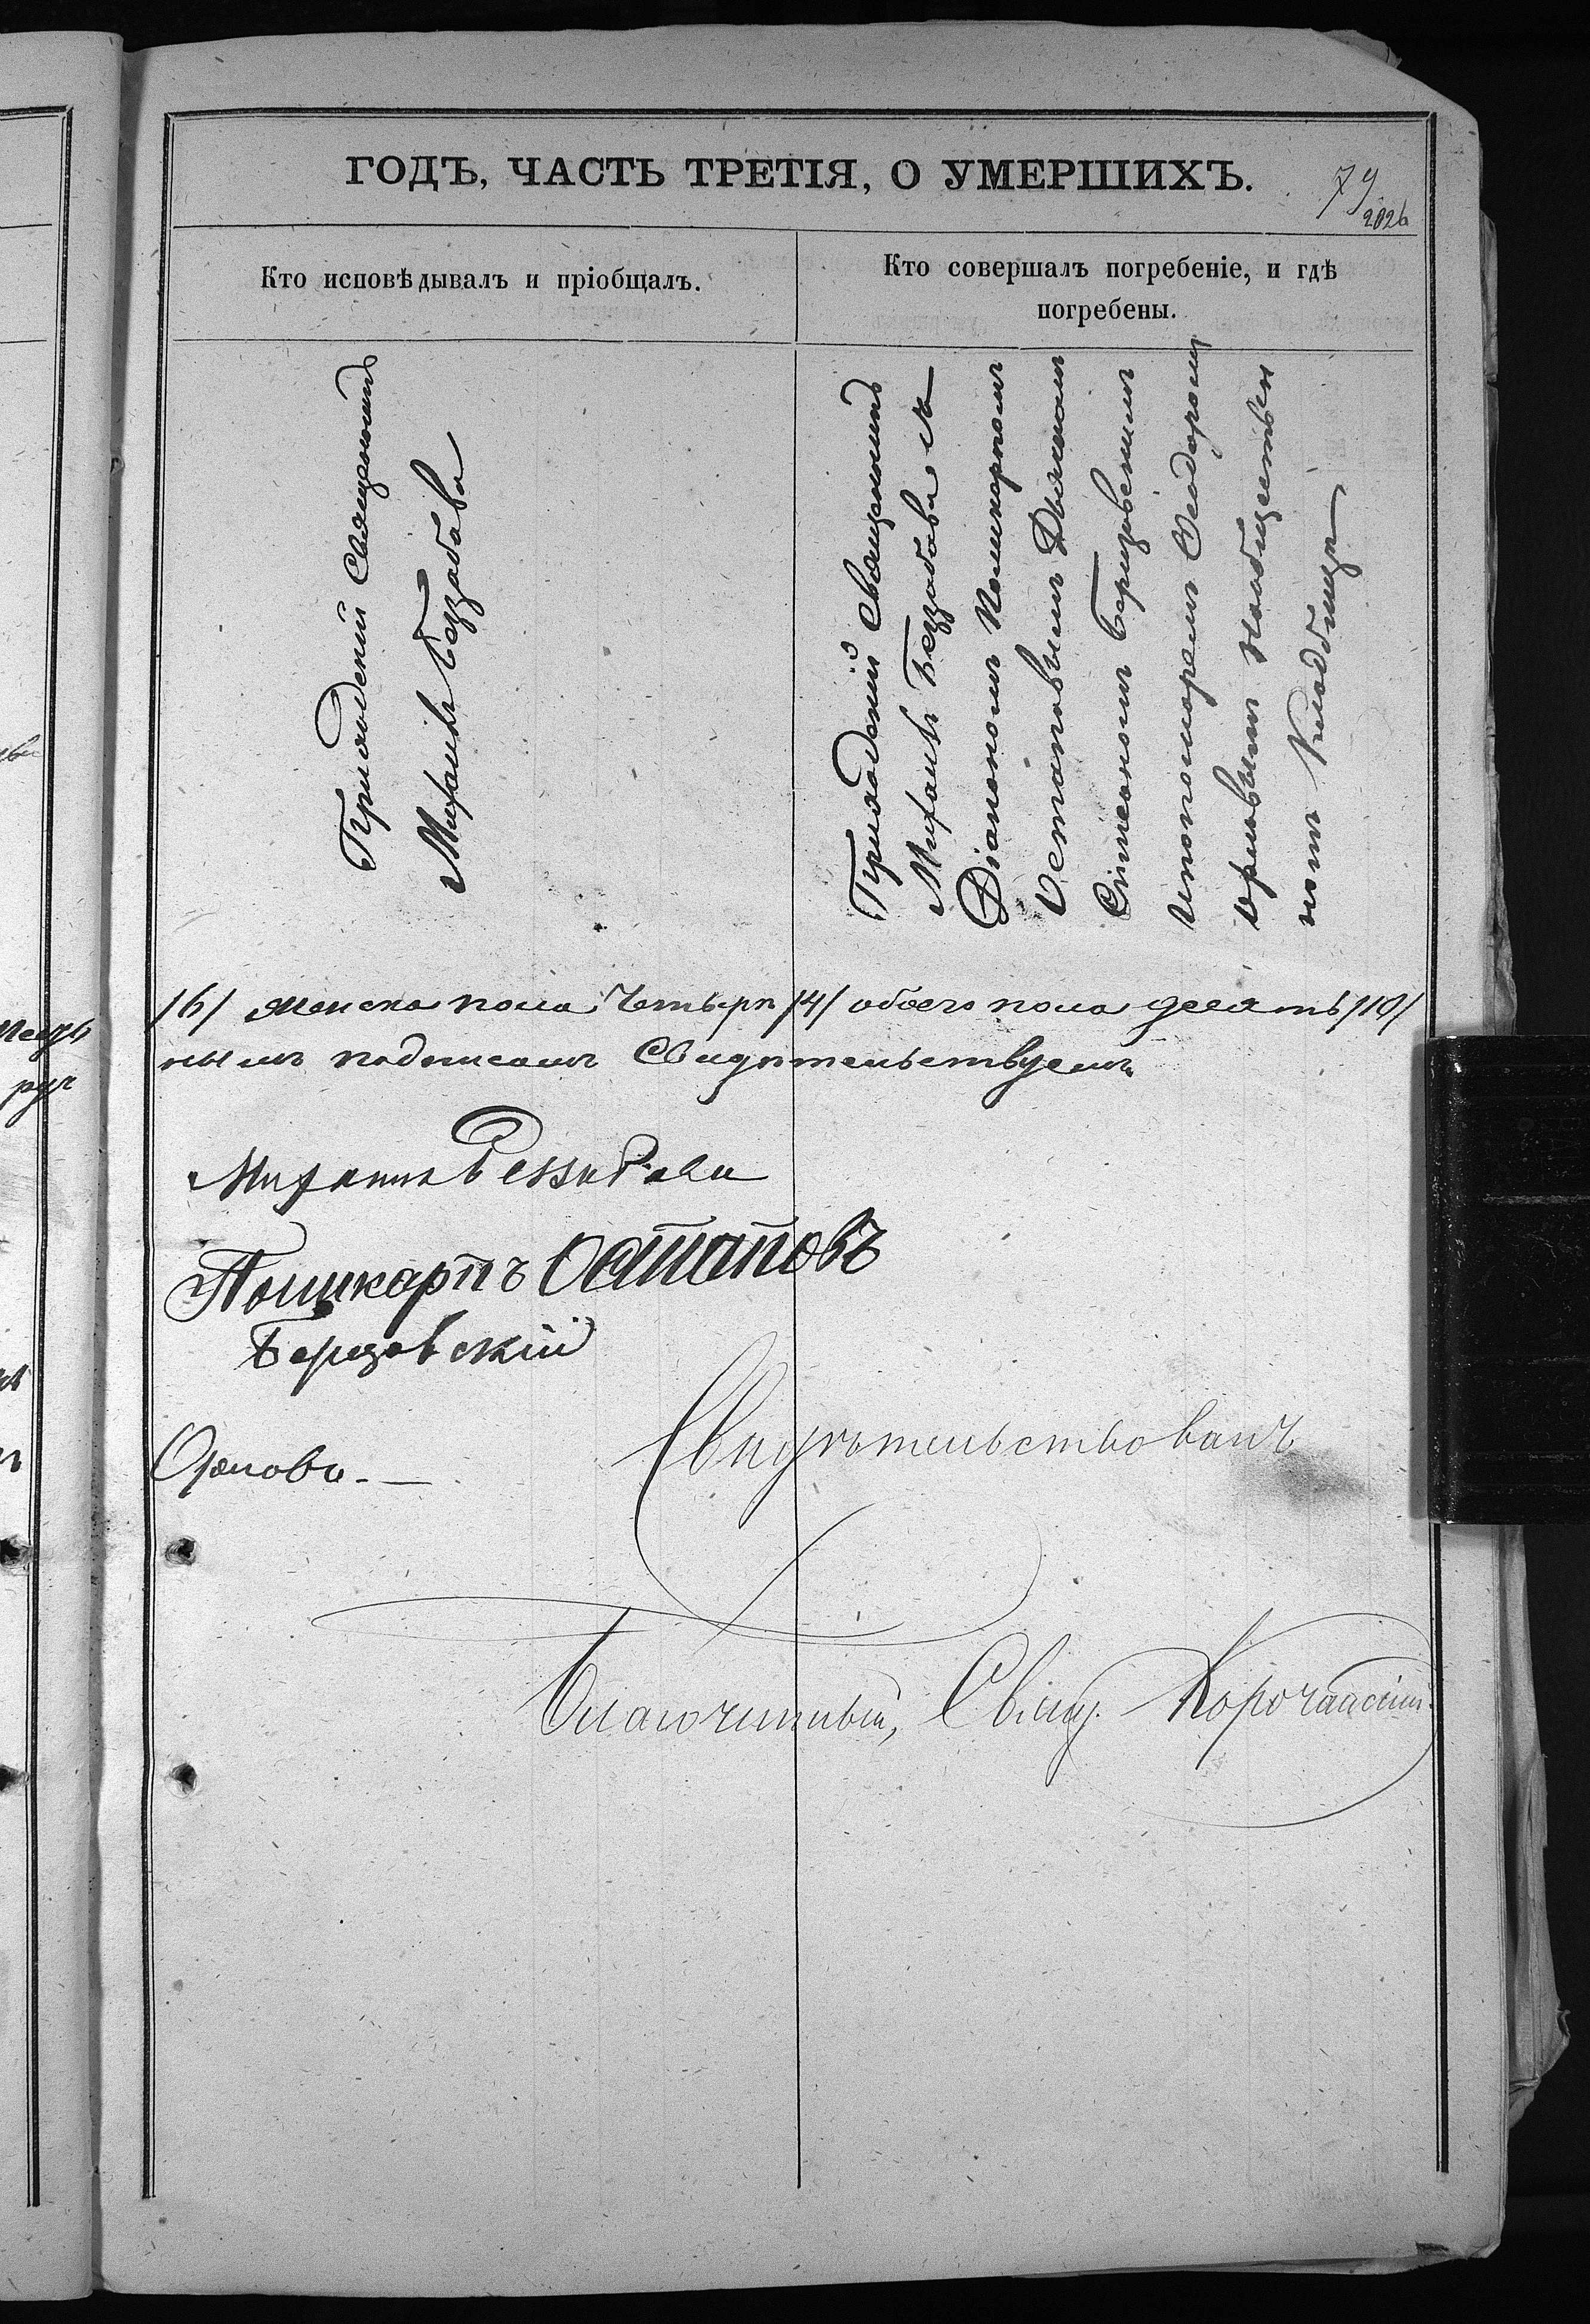 ГОДЪ, ЧАСТЬ ТРЕТІЯ, О УМЕРШИХЪ.
79
202б
Кто исповѣдывалъ и пріобщалъ.
Кто совершалъ погребеніе, и гдѣ
погребены.
Приходскій Священникъ
Михаилъ Беззабава
Приходскій Священникъ
Михаилъ Беззабава съ
Діакономъ Поликарпомъ
Остаповымъ Дьячкомъ
Симеономъ Борщевскимъ
Пономаремъ Ѳеодоромъ
Орловымъ на обществен
номъ кладбищѣ
/6/ женска пола Четыре /4/ обоего пола десять /10/
нымъ подписомъ Свидѣтельствуемъ
Михаилъ Беззабава
Поликарпъ Остаповъ
Борщевскій
Орловъ.
Свидѣтельствовалъ
Благочинный, Свящ. Корочанскій.